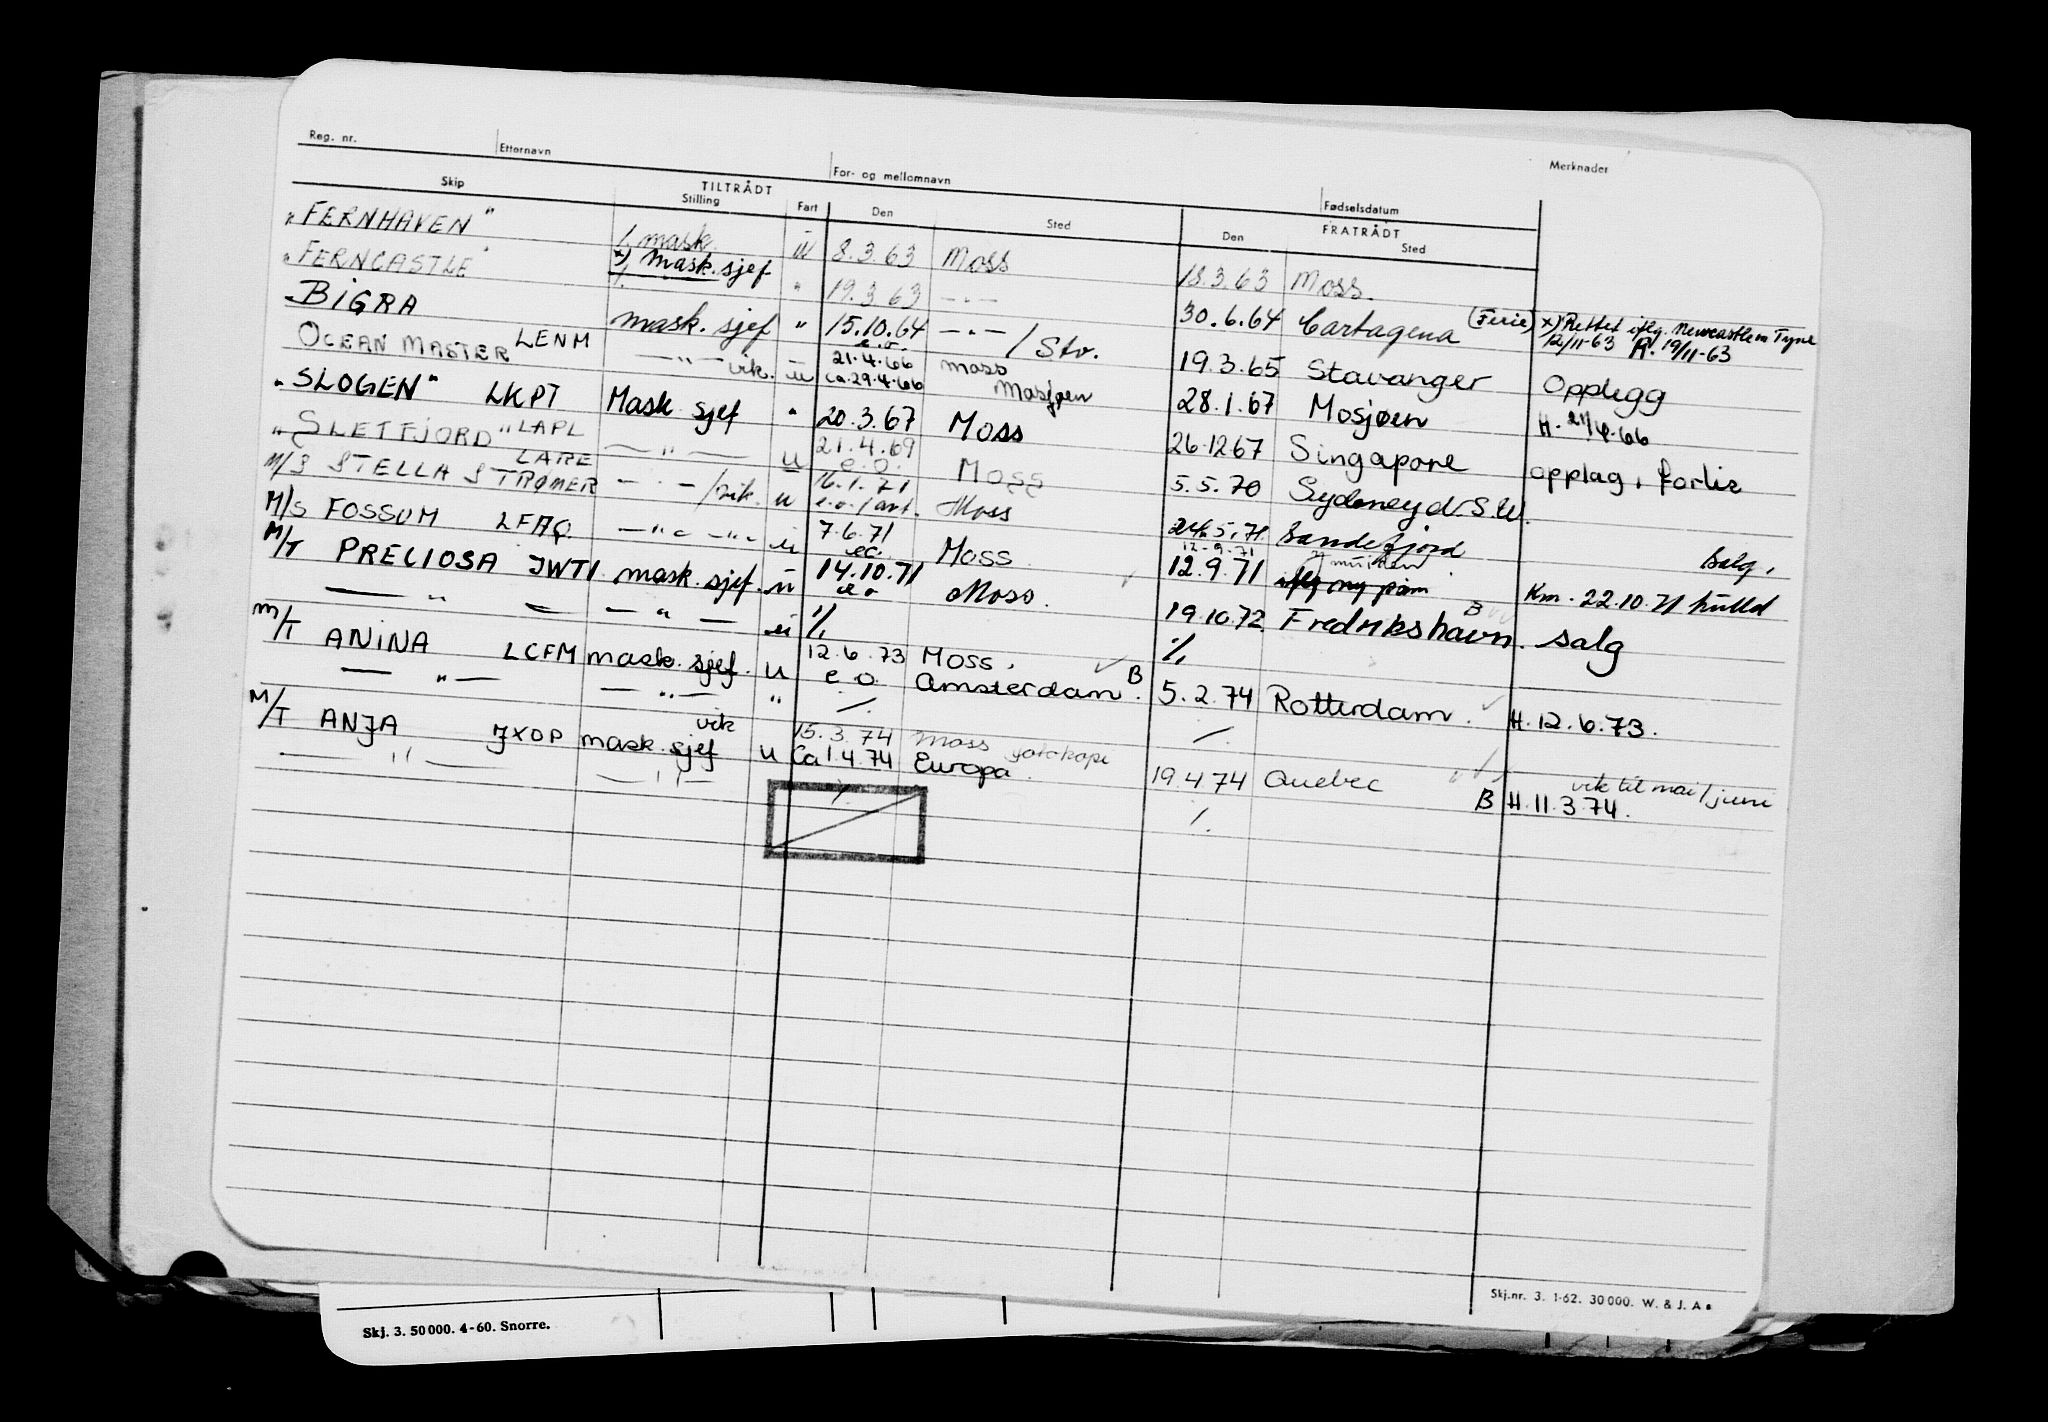 Reg. nr. Etternavn For- og mellomnavn Fødselsdatum Merknader
TILTRÅDT FRATRÅDT
Skip Stilling Fart Den Sted Den Sted
"FERNHAVEN" 1. mask. u 8.3.63 Moss 18.3.63 Moss.
"FERNCASTLE" x) Mask. sjef " 19.3.63 — " — 30.6.64 Cartagena (Ferie) x) Rettet iflg. Newcastle on Tyne 12/11-63 R. 19/11-63
BIGRA mask. sjef " 15.10.64 e.o. — " — / Stv. 19.3.65 Stavanger Opplegg
OCEAN MASTER LENM — " — vik. u 21.4.66 ca. 29.4.66 Moss Mosjøen 28.1.67 Mosjøen H. 21/4.66
"SLOGEN" LKPT Mask sjef " 20.3.67 Moss 26.12.67 Singapore opplag, forlis
"SLETFJORD" LAPL — " — u 21.4.69 e.o. Moss 5.5.70 Sydney
M/S STELLA STRØMER LARE — " — /vik. u 16.1.71 e.o./ant. Moss 5.71 Sandefjord Salg.
M/S FOSSUM LFAQ — " — u 7.6.71 eo. Moss 12.9.71 12.9.71 Km. 22.10.71
M/T PRECIOSA JWTI mask. sjef. u 14.10.71 eo Moss. 19.10.72 Fredrikshavn. B salg
— " — — — " — u % %
M/T ANINA LCFM mask. sjef. u 12.6.73 e.o. Moss. Amsterdam. B 5.2.74 Rotterdam. H. 12.6.73.
— " — — " — " /. /.
M/T ANJA JXOP mask. sjef vik u 15.3.74 Ca 1.4.74 Moss fotokopi Europa. 19.4.74 Quebec B vik til mai/juni H. 11.3.74.
— " — — " — /.
Skj.nr. 3. 1-62. 30 000. W. & J. A s
Skj. 3. 50 000. 4-60. Snorre.